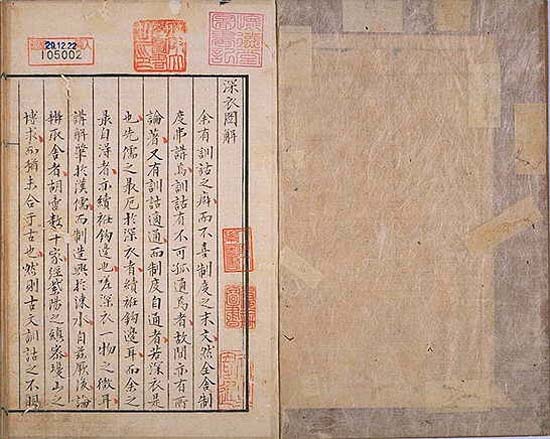 29.12.22
105002
深衣图解
余有訓詁之癖而不喜制度之末文然全舍制
度弗講爲訓詁有不可孤通爲者故間亦有所
論著又有訓詁適通而制度自通者若深衣是
也先儒之最厄於深衣者續衽鉤邊耳而余之
最自淂者亦續衽鉤邊也深衣一物之微耳
講解肇於漢儒而制造興於涑水自茲厥後論
舍者胡啻數十家經紫陽之鎮瓊山之
博求猶未合乎古也然則古訓詁之不明